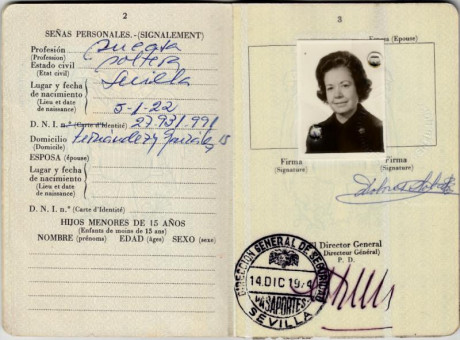 2
SEÑAS PERSONALES.-(SIGNALEMENT)
Profesión
(Profession)
Estado civil soltera
(Etat civil)
Sevilla
Lugar y fecha
de nacimiento
(Lieu et date
de naissance)
5-1-22
D. N. I. n.º (Carte d'Identité) 27.931.991
Domicilio Fernandez y Gonzalez, 15
(Domicile)
ESPOSA (épouse)
Lugar y fecha
de nacimiento
(Lieu et date
de naissance)
D. N. I. n.º (Carte d'Identité)
HIJOS MENORES DE 15 AÑOS
(Enfants de moins de 15 ans)
NOMBRE (prénoms) EDAD (Ages) SEXO (sexe)
3
(Epouse)
Firma
(Signature)
Firma
(Signature)
El Director General
(Directeur Général)
P. D.
DIRECCION GENERAL DE SEGURIDAD
14 DIC 1974
PASAPORTES
SEVILLA